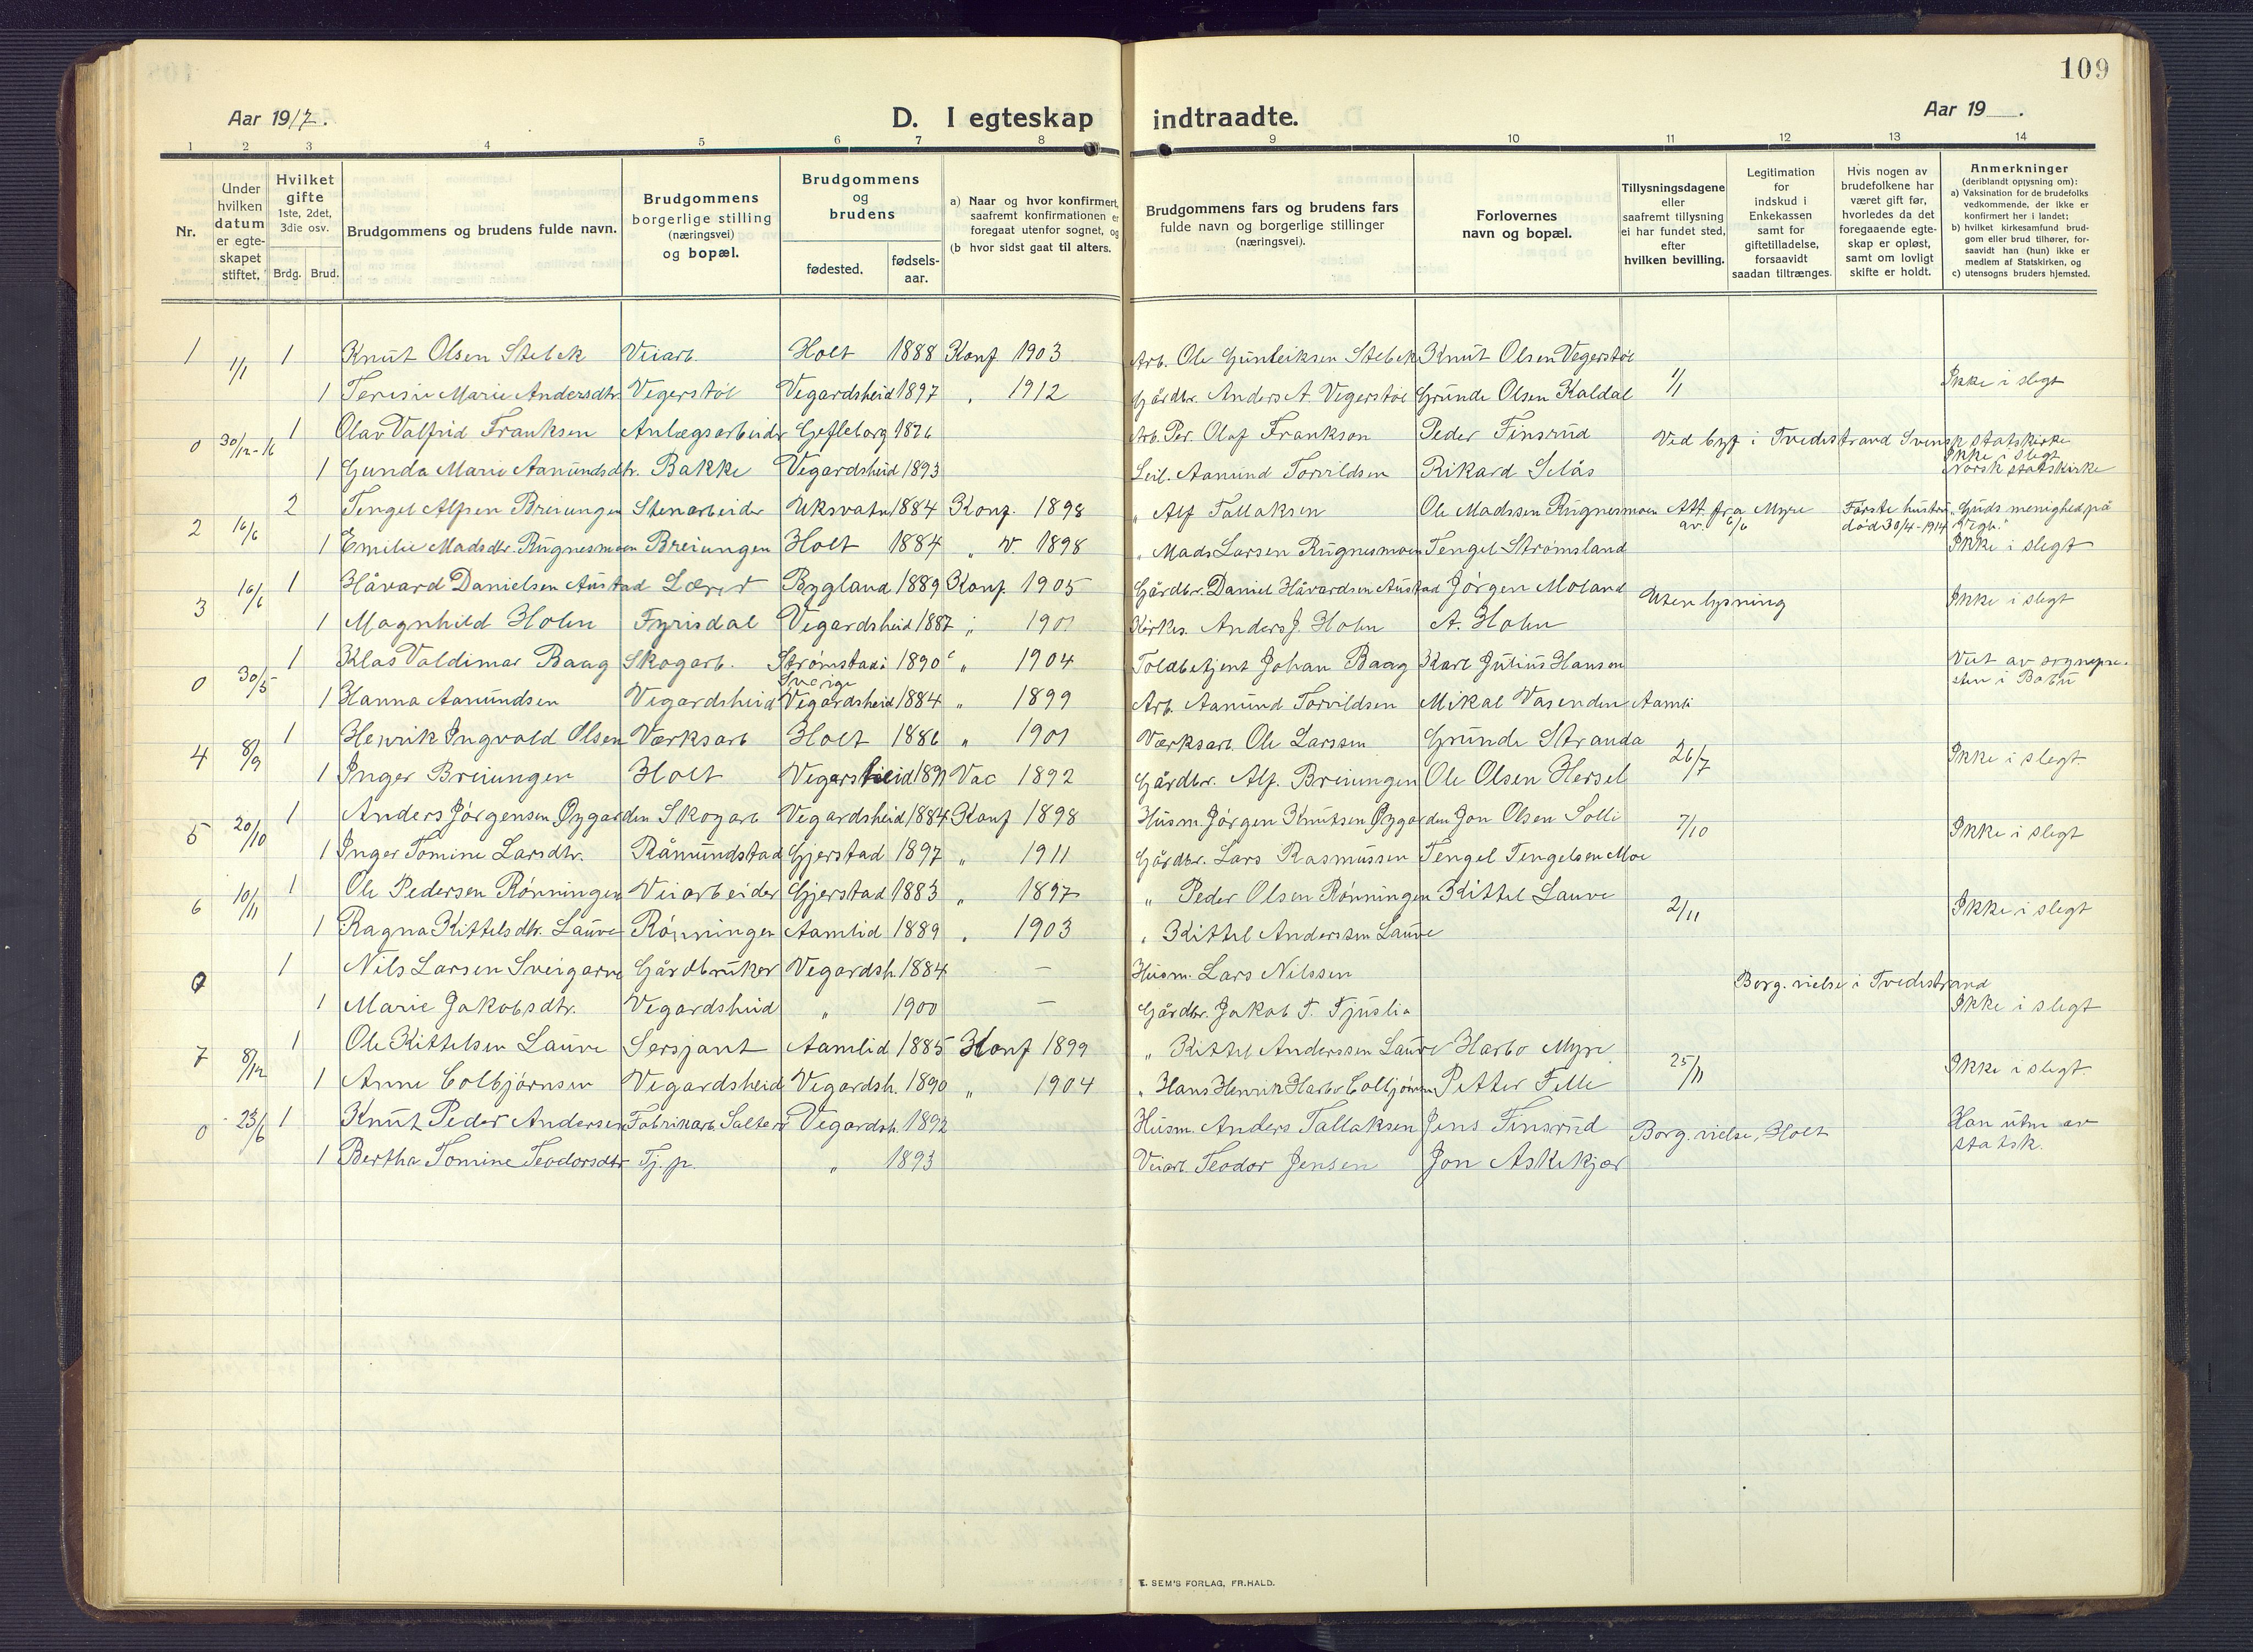 109
Aar 1917.
D. I egteskap indtraadte.
Aar 19__.
1 2 3 4 5 6 7 8 9 10 11 12 13 14
Nr.
Under hvilken datum er egteskapet stiftet.
Hvilket gifte 1ste, 2det, 3die osv.
Brdg. Brud.
Brudgommens og brudens fulde navn.
Brudgommens borgerlige stilling (næringsvei) og bopæl.
Brudgommens og brudens
fødested. fødsels-aar.
a) Naar og hvor konfirmert, saafremt konfirmationen er foregaat utenfor sognet, og
(b hvor sidst gaat til alters.
Brudgommens fars og brudens fars fulde navn og borgerlige stillinger (næringsvei).
Forlovernes navn og bopæl.
Tillysningsdagene eller saafremt tillysning ei har fundet sted, efter hvilken bevilling.
Legitimation for indskud i Enkekassen samt for giftetilladelse, forsaavidt saadan tiltrænges.
Hvis nogen av brudefolkene har været gift før, hvorledes da det foregaaende egteskap er opløst, samt om lovligt skifte er holdt.
Anmerkninger (deriblandt opjysning om):
a) Vaksination for de brudefolks vedkommende, der ikke er konfirmert her i landet;
b) hvilket kirkesamfund brudgom eller brud tilhører, forsaavidt han (hun) ikke er medlem af Statskirken, og
c) utensogns bruders hjemsted.
1 1/1 1 Knut Olsen Stebek Veiarb. Holt 1888 Konf 1903 Arb. Ole Gunleiksen Stebek Knut Olsen Vegerstøl
1 Teresie Marie Andersdtr Vegerstøl Vegardsheid 1897 " 1912 Gårdbr. Anders A. Vegerstøl Grunde Olsen Kaldal 1/1 Ikke i slegt
0 30/12-16 1 Olav Valfrid Franksen Anlægsarbeider Gefleborg 1876 Arb. Per. Olof Frankson Peder Finsrud Ved byf i Tvedestrand Svensk statskirke
Ikke i slegt
1 Gunda Marie Aamundsdtr. Bakke Vegardsheid 1893 Leil. Aamund Torvildsen Rikard Selås Norsk statskirke
2 16/6 2 Tengel Alfsen Breiungen Stenarbeider Uksvatn 1884 Konf. 1898 " Alf Tallaksen Ole Madssen Rugnesmoen Att. fra Myre av. 6/6 Første hustru død 30/4-1914 "Guds menighed på Vegh."
1 Emilie Madsdtr. Rugnesmoen Breiungen Holt 1884 " V. 1898 " Mads Larsen Rugnesmoen Tengel Strømsland Ikke i slegt
3 16/6 1 Håvard Danielsen Austad Lærer Bygland 1889 Konf. 1905 Gårdbr. Daniel Håvardsen Austad Jørgen Moland Uten lysning Ikke i slegt
1 Magnhild Holm Fyrisdal Vegardsheid 1887 " 1901 Kirkes. Anders J. Holm A. Holm
0 30/5 1 Klas Valdimar Baag Skogarb. Strømstad i Sverige 1890 " 1904 Toldbetjent Johan Baag Karl Julius Hansen Viet av sognepresten i
1 Hanna Aamundsen Vegardsheid Vegardsheid 1884 " 1899 Arb. Aamund Torvildsen Mikal Vasenden Aamli
4 8/9 1 Henrik Ingvald Olsen Værksarb Holt 1886 " 1901 Værksarb. Ole Larssen Grunde Stranda 26/7 Ikke i slegt.
1 Inger Breiungen Holt Vegarsheid Vac 1892 Gårdbr. Alf. Breiungen Ole Olsen Hersel
5 20/10 1 Anders Jørgensen Øygarden Skogarb Vegardsheid 1884 Konf 1898 Husm. Jørgen Knutsen Øygarden Jon Olsen Solli 7/10 Ikke i slegt
1 Inger Tomine Larsdtr. Råmundstad Gjerstad 1897 " 1911 Gårdbr. Lars Rasmussen Tengel Tengelsen Moe
6 10/11 1 Ole Pedersen Rønningen Veiarbeider Gjerstad 1883 " 1897 " Peder Olsen Rønningen Kittel Lauve 2/11 Ikke i slegt
1 Ragna Kittelsdtr. Lauve Rønningen Aamlid 1889 " 1903 " Kittel Anderssen Lauve
0 1 Nils Larsen Sveigarve Gårdbruker Vegardsh. 1884 — Husm. Lars Nilssen Borg. vielse i Tvedestrand
1 Marie Jakobsdtr. Vegardsheid " 1900 — Gårdbr. Jakob T. Tjuslia Ikke i slegt
7 8/12 1 Ole Kittelsen Lauve Sersjant Aamlid 1885 Konf 1899 " Kittel Anderssen Lauve Harbo Myre 25/11 Ikke i slegt
1 Anne Colbjørnsen Vegardsheid Vegardsh. 1890 " 1904 " Hans Henrik Harbo Colbjørnsen Petter Felle
0 23/6 1 Knut Peder Andersen Fabrikarb. Vegardsh. 1892 Husm. Anders Tallaksen Jens Finsrud Borg. vielse, Holt Han utm av statsk.
1 Bertha Tomine Teodorsdtr Tj. p. " 1893 Veiarb Teodor Jensen Jon Askekjær
E. SEM'S FORLAG, FR.HALD.